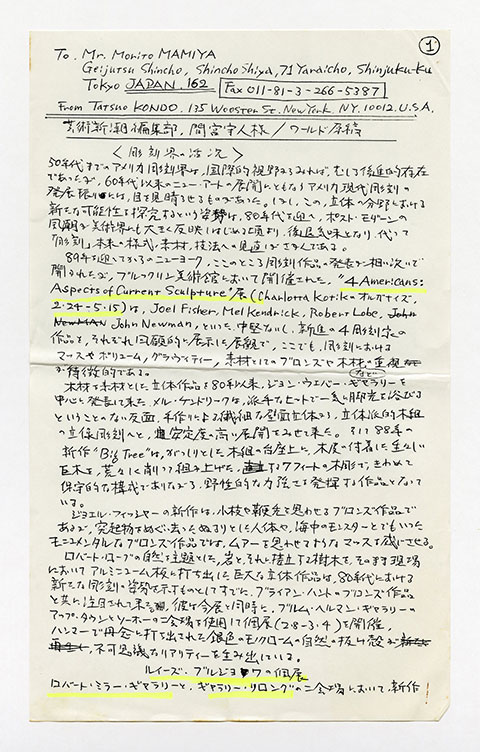 ①
To. Mr. Morito MAMIYA
Geijutsu Shincho, Shincho Shiya, 71 Yaraicho, Shinjuku-Ku
Tokyo JAPAN. 162 Fax 011-81-3-266-5387
From Tatsuo KONDO. 135 Wooster St. New York. NY. 10012. U.S.A.
芸術新潮編集部, 間宮宇人様 / ワールド原稿
〈彫刻界の活況〉
50年代までのアメリカ彫刻界は, 国際的視野からみれば, むしろ後進的存在
であったが, 60年代以来のニュー・アートの展開にともなうアメリカ現代彫刻の
発展振りには, 目を見晴らせるものがあった。しかし, この, 立体の分野における
新たな可能性を探究するという姿勢は, 80年代を迎へ, ポスト・モダーンの
風潮が美術界にも大きく反映しはじめた頃より, 後退気味となり, 代って
「彫刻」本来の様式, 素材, 技法への見直しがさかんである。
89年を迎へてからのニューヨーク, ここのところ彫刻作品の発表が相い次いで
開かれたが, ブルックリン美術館において開催された, “4 Americans:
Aspects of Current Sculpture”展 (Charlotta Kotikのオルガナイズ,
2.24-5.15)は, Joel Fisher, Mel Kendrick, Robert Lobe, John
Newman John Newman, といった, 中堅ないし, 新進の4彫刻家の
作品を, それぞれ回顧的に展示した展観で, ここでも, 彫刻における
マッスやボリューム, グラヴィティー, 素材としてのブロンズや木材の重視
などが特徴的である。
木材を素材とした立体作品を80年以来, ジョン・ウエバー・ギャラリーを
中心に発表して来た, メル・ケンドリックは, 派手なヒットで一気に脚光を浴びる
ということのない反面, 手作りによる繊細な壁面立体から, 立体派的木組
の立体彫刻へと, 安定度の高い展開をみせて来た。そして88年の
新作“Big Tree”は, がっしりとした木組の台座上に, 木皮の付着した生々しい
巨木を, 荒々に削って組み上げた, 7フィートの木彫で, きわめて
保守的な構成でありながら, 野性的な力強さを発揮する作品となって
いる。
ジョエル・フィッシャーの新作は, 小枝や鞭毛を思わせるブロンズ作品で
あるが, 突起物をめぐい去ったぬるりとした人体や, 海中のモンスターとでもいった
モニュメンタルなブロンズ作品では, ムアーを思わせてようなマッスを感じさせる。
ロバート・ローブの自然を主題とした, 岩と, それに接立する樹木を, そのまま現場
においてアルミニューム板に打ち出した巨大な立体作品は, 80年代における
新たな彫刻の姿勢を示すものとしてすでに, ブライアン・ハントのブロンズ作品
と共に注目されて来たが, 彼は今展と同時に, ブルム・ヘルマン・ギャラリーの
アップ・タウンとソーホーの二会場を使用して個展 (2.8-3.4) を開催,
ハンマーで丹念に打ち出された銀色のモノクロームの自然の抜け殻が
, 不可思議なリアリティーを生み出している。
ルイーズ・ブルジョワの個展
ロバート・ミラー・ギャラリーと, ギャラリー・リロングの二会場において, 新作